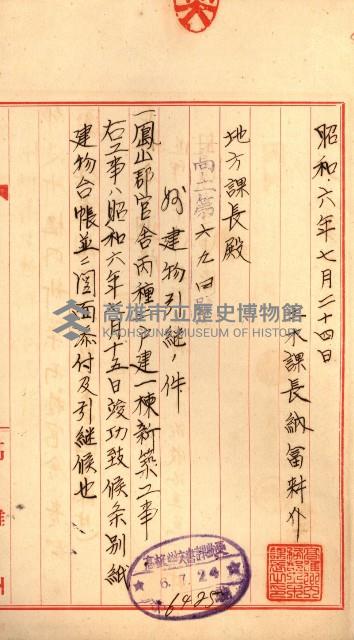 昭和六年七月二十四日
土木課長納冨耕介
地方課長殿
高土第六九四號
建物引継ノ件
一、鳳山郡官舎丙種 建一棟新築工事
右工事ハ昭和六年 月十五日竣功致候条別紙
建物台帳並ニ図面添付及引継候也
高雄市立歷史博物館
KAOHSIUNG MUSEUM OF HISTORY
6.7.24
6425
高雄州